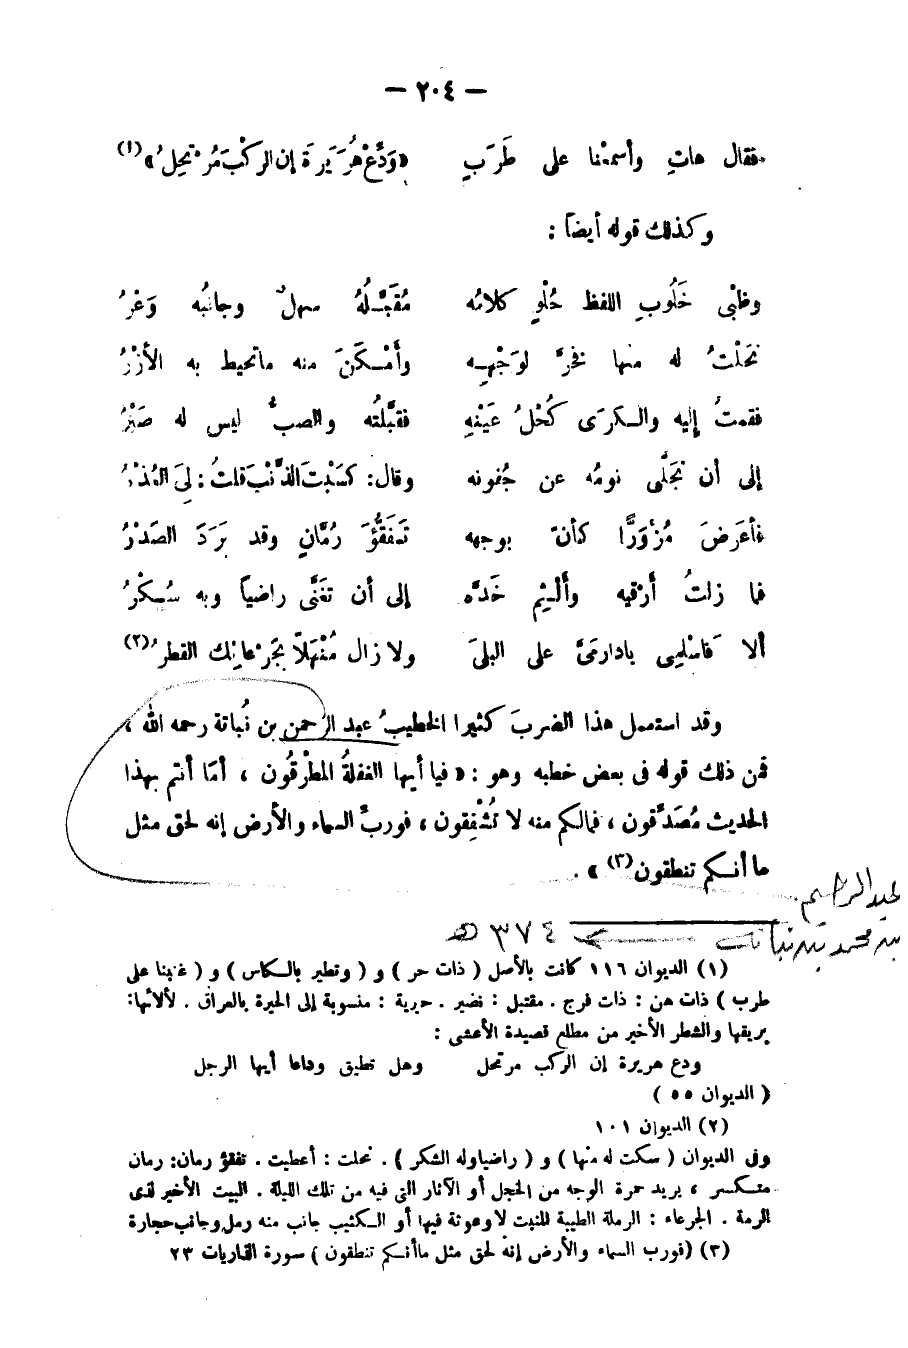 — ٢٠٤ —
فقال هاتِ وأسمعْنا على طَرَبٍ «وَدِّعْ هُرَيرةَ إن الركْبَ مُرْتحِلُ»(١)
وكذلك قوله أيضاً :
وظبْيٍ خَلُوبِ اللفظ حُلْوٍ كلامُه مُقَبَّلُهُ سهلٌ وجانبُه وَعْرُ
نَحَلْتُ له منها فخرَّ لوَجْهِـه وأمْـكَنَ منه ماتحيط به الأزْرُ
فقمتُ إليه والـكرَى كُحْلُ عَيْنِهِ فقبَّلتُه والصبُّ ليس له صَبْرُ
إلى أن تَجَلَّى نومُه عن جُفونه وقال: كسَبْتَ الذَّنْبَ قلتُ : لِىَ العُذْرُ
فأعرَضَ مُزْوَرًّا كأنّ بوجهه تَفَقُّؤَ رُمَّانٍ وقد بَرَدَ الصَدْرُ
فما زلتُ أرْقيه وألـثِم خَدَّه إلى أن تغَنَّى راضياً وبه سُـكْرُ
ألا فَاسْلِمِى يادارمَىَّ على البلَى ولا زال مُنْهَلاًّ بجَرْعائِك القَطْرُ(٢)
وقد استعمل هذا الضربَ كثيرا الخطيبُ عبد الرحمن بن نُباتة رحمه الله ،
فمن ذلك قوله فى بعض خطبه وهو : « فيا أيها الغفلةُ المطْرِقُون ، أمَا أنتم بهذا
الحديث مُصَدِّقون ، فمالكم منه لا تُشْفِقون ، فوربِّ السماء والأرض إنه لحق مثل
ما أنـكم تنطقون(٣) » .
عبد الرحيم
بن محمد بن نباتة
٣٧٤ هـ
(١) الديوان ١١٦ كانت بالأصل ( ذات حر ) و ( وتطير بالـكاس ) و ( غنينا على
طرب ) ذات هن : ذات فرج . مقتبل : نضير . حيرية : منسوبة إلى الحيرة بالعراق . لألائها:
بريقها والشطر الأخير من مطلع قصيدة الأعشى :
ودع هريرة إن الركب مرتحل وهل تطيق وداعا أيها الرجل
( الديوان ٥٥ )
(٢) الديوان ١٠١
وفى الديوان ( سكت له منها ) و ( راضيا وله الشكر ) . نحلت : أعطيت . تفقؤ رمان: رمان
متـكسر ، يريد حمرة الوجه من الخجل أو الآثار التى فيه من تلك الليلة . البيت الأخير لذى
الرمة . الجرعاء : الرملة الطيبة المنبت لا وعوثة فيها أو الـكثيب جانب منه رمل وجانب حجارة
(٣) (فورب السماء والأرض إنه لحق مثل ما أنـكم تنطقون ) سورة الذاريات ٢٣